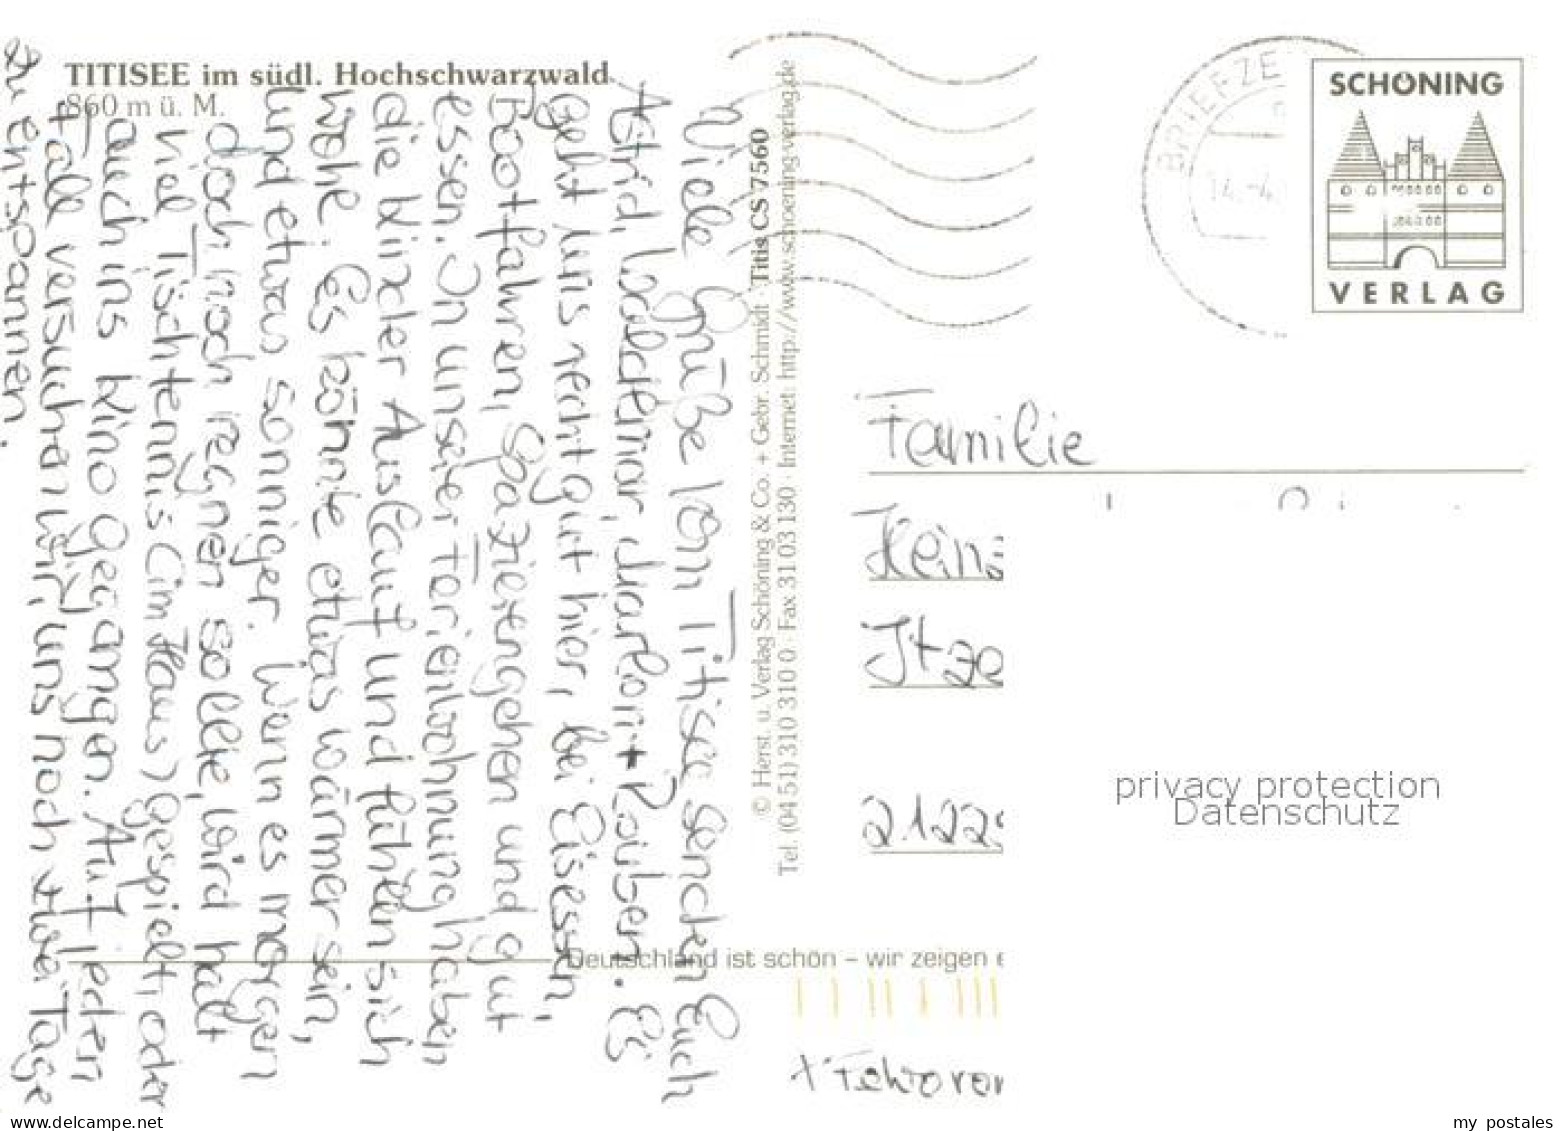 TITISEE im südl. Hochschwarzwald
860 m ü. M.
Viele Grüße vom Titisee senden Euch
Astrid, Waldemar, Marlon + Rouben. Es
geht uns recht gut hier, bei Eisessen,
Bootfahren, Spazierengehen und gut
essen. In unserer Ferienwohnung haben
die Kinder Auslauf und fühlen sich
wohl. Es könnte etwas wärmer sein,
und etwas sonniger. Wenn es morgen
doch noch regnen sollte, wird halt
viel Tischtennis (im Haus) gespielt, oder
auch ins Kino gegangen. Auf jeden
Fall versuchen wir, uns noch zwei Tage
zu entspannen.
© Herst. u. Verlag Schöning & Co. + Gebr. Schmidt · Titis CS 7560
Tel. (04 51) 310 310 0 · Fax 31 03 130 · Internet: http://www.schoening-verlag.de
BRIEFZE
14.-4.
SCHÖNING
VERLAG
Familie
Hein
Itze
2122
privacy protection
Datenschutz
Deutschland ist schön – wir zeigen e
www.delcampe.net
my postales